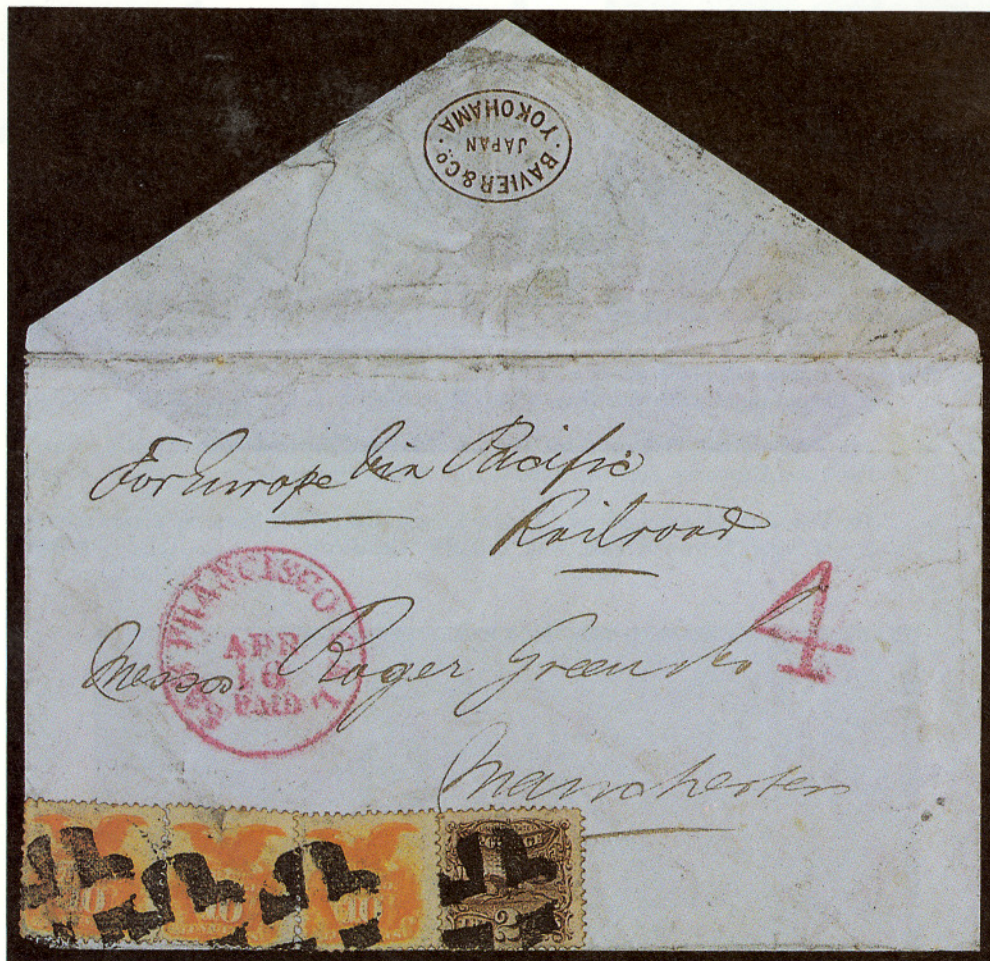 BAVIER & Co.
JAPAN
YOKOHAMA
For Europe via Pacific
Railroad
SAN FRANCISCO CAL
APR
16
PAID
4
Messrs Roger Green & Co
Manchester
10
10
10
2